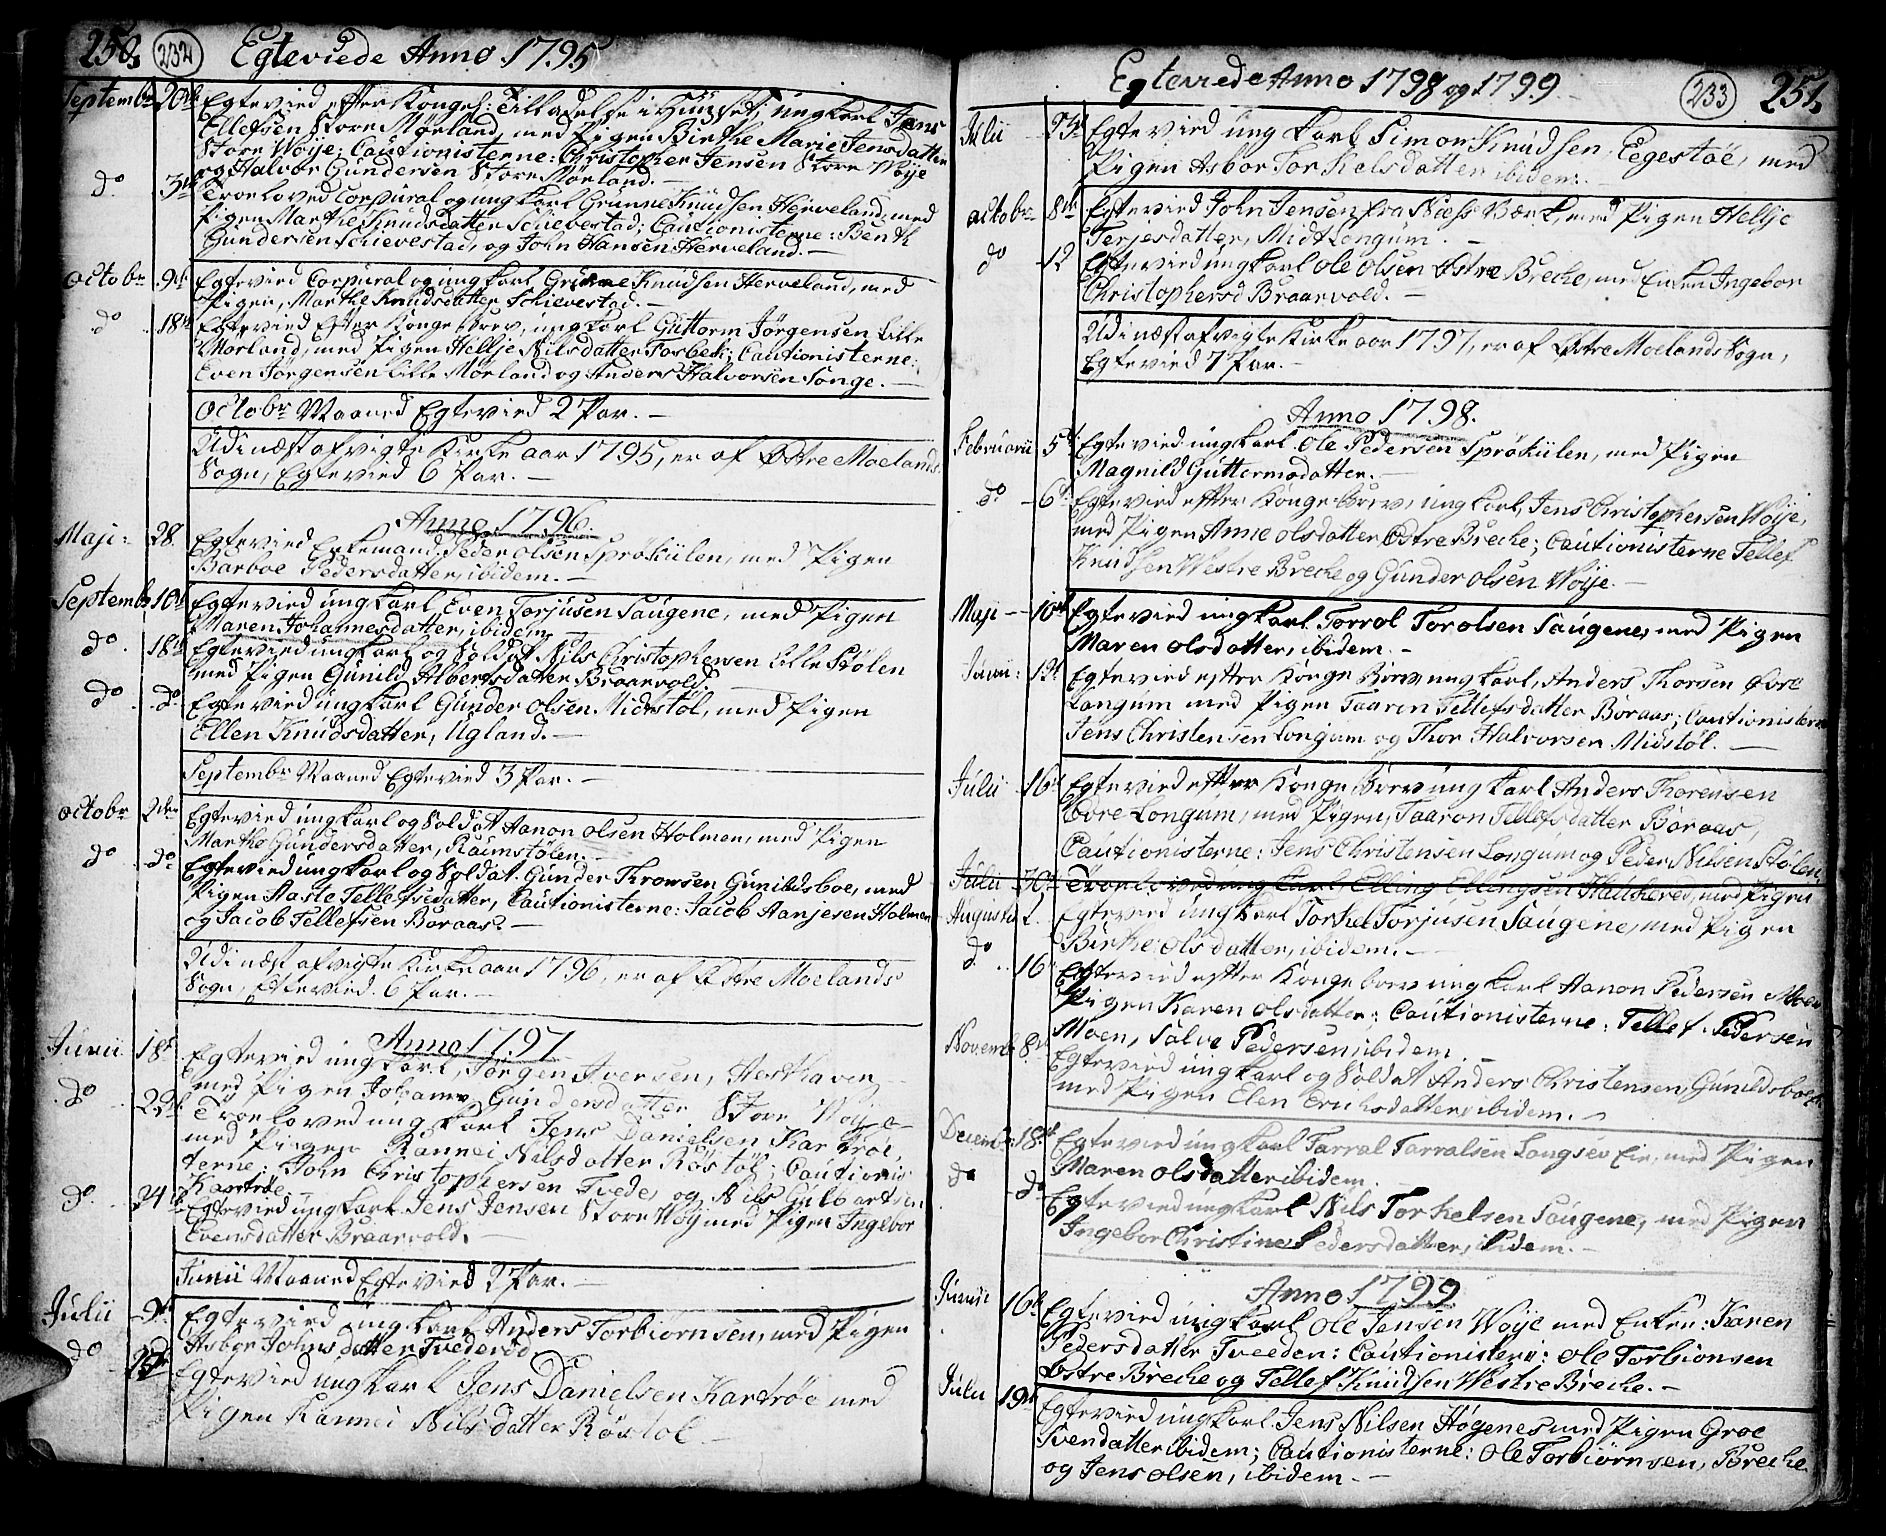 250, 232 Egteviede Anno 1795
Septembr 20de Egtevied efter Konges: Tilladelse i Huuset, ung Karl Jens
Ellefsen Store Mørland, med Pigen Birthe Marie Jensdatter
Store Woÿe; Cautionisterne: Christopher Jensen Store Woÿe
og Halvor Gundersen Store Mørland. —
do 3de Troeloved Corpural og ung Karl Grunne Knudsen Herveland, med
Pigen Marthe Knudsdatter Schievestad; Cautionisterne: Benth
Gundersen Schievestad, og John Hansen Herveland. —
Octobr 9de Egtevied Corpural og ung Karl Grunne Knudsen Herveland, med
Pigen, Marthe Knudsdatter Schievestad. —
do 18de Egtevied Efter Konge Brev, ung Karl Guttorm Jörgensen Lille
Mørland, med Pigen Hellje Nilsdatter Fosbek; Cautionisterne:
Even Jörgensen Lille Mørland og Anders Halvorsen Songe. —
Octobr Maaned Egtevied 2 Par. —
Udi næst afvigte Kirke aar 1795, er af Østre Moelands
Sogn, Egtevied 6 Par. —
Anno 1796.
Maji: 28 Egtevied Enkemand Peder Olsen Sprøkülen, med Pigen
Barboe Pedersdatter, ibidem. —
Septembr 10de Egtevied ung Karl Even Torjusen Saugene, med Pigen
Maren Johannesdatter, ibidem
do 18de Egtevied ung Karl og Soldat Nils Christophersen Lille Stølen
med Pigen Gunild Albertsdatter Braarvold.
do do Egtevied ung Karl Gunder Olsen Midstøl, med Pigen
Ellen Knudsdatter, Ugland. —
Septembr Maaned Egtevied 3 Par. —
Octobr 2den Egtevied ung Karl og Soldat Aanon Olsen Holmen, med Pigen
Marthe Gundersdatter, Raamstølen. —
do do Egtevied ung Karl og Soldat: Gunder Thromsen Gunildsboe, med
Pigen Aaste Tellefsdatter, Cautionisterne: Jacob Aanjesen Holmen
og Jacob Tellefsen Boraas. —
Udi næst afvigte Kirke aar 1796, er af Østre Moelands
Sogn, Egtevied 6 Par. —
Anno 1797
Junii 18de Egtevied ung Karl, Jörgen Iversen, Hesthaven
med Pigen Johanne Gundersdatter Store Woÿe
do 22de Troeloved ung Karl Jens Danielsen Kartrøe,
med Pigen Rannei Nilsdatter Røstøl; Cautionis
terne: John Christophersen Tvede, og Nils Gulbartsen
Kartrøe
do 24de Egtevied ung Karl Jens Jensen Store Woÿ med Pigen Ingebor
Evensdatter Braarvold.
Junii Maaned Egtevied 2 Par. —
Julii 9de Egtevied ung Karl Anders Torbiörnsen, med Pigen
Asbor Johnsdatter Tvederød
do Egtevied ung Karl Jens Danielsen Kartrøe med
Pigen Rannei Nilsdatter Røstøl —
Egteviede Anno 1798 og 1799 233 251,
Julii 23de Egtevied ung Karl Simon Knudsen Eegestøe, med
Pigen Asbor Torkelsdatter ibidem: —
Octobr 8de Egtevied John Jensen fra Næss Værk med Pigen Hellje
Terjesdatter, Midt Longum. —
do 12 Egtevied ung Karl Ole Olsen Østre Breche, med Enken Ingebor
Christophersd Braarvold. —
Udi næst afvigte Kirke aar 1797, er af Østre Moelands Sogn,
Egtevied 7 Par. —
Anno 1798.
Februarii 5te Egtevied ung Karl Ole Pedersen Sprøkülen, med Pigen
Magnild Guttormsdatter. —
do 6te Egtevied efter Konge Brev, ung Karl, Jens Christophersen Woÿe,
med Pigen Anne Olsdatter Østre Breche; Cautionisterne Tellef
Knudsen Westre Breche og Gunder Olsen Woÿe. —
Maji 10de Egtevied ung Karl Torrol Torolsen Saugene, med Pigen
Maren Olsdatter, ibidem. —
Junii: 12te Egtevied efter Konge Brev ung Karl, Anders Thorsen Øvre
Longum med Pigen Taaren Tellefsdatter Boraas; Cautionisterne
Jens Christensen Longum og Thor Halvorsen Midstøl. —
Julii 16de Egtevied efter Konge Brev ung Karl Anders Thorensen
Øvre Longum, med Pigen, Taaron Tellefsdatter Boraas,
Cautionisterne: Jens Christensen Longum og Peder Nilsen Stølen,
Julii 30te Troeloved ung Karl, Elling Ellingsen Hallsered, med Pigen
Augusti Egtevied ung Karl Torkel Torjusen Saugene, med Pigen
Birthe Olsdatter, ibidem. —
do 16 Egtevied efter Konge brev ung Karl Aanon Pedersen Moen
Pigen Karen Olsdatter: Cautionisterne: Tellef Pedersen
Moen, Salve Pedersen ibidem. —
Novemb 8de Egtevied ung Karl og Soldat Anders Christensen Gunildsboe
med Pigen Elen Erichsdatter ibidem. —
Decemb: 18de Egtevied ung Karl Tarral Tarralsen Longsev Eie, med Pigen
Maren Olsdatter ibidem.
do do Egtevied ung Karl Nils Torkelsen Saugene, med Pigen
Ingebor Christine Pedersdatter, ibidem. —
Anno 1799
Junii 16de Egtevied ung Karl Ole Jensen Woÿe med Enken: Karen
Pedersdatter Tveeden: Cautionistern: Ole Torbionsen
Østre Breche og Tellef Knudsen Westre Breche. —
Julii 19de Egtevied ung Karl Jens Nilsen Høgenes med Pigen Groe
Svendatter ibidem; Cautionisterne: Ole Torbiörnsen, Breche
og Jens Olsen, ibidem. —